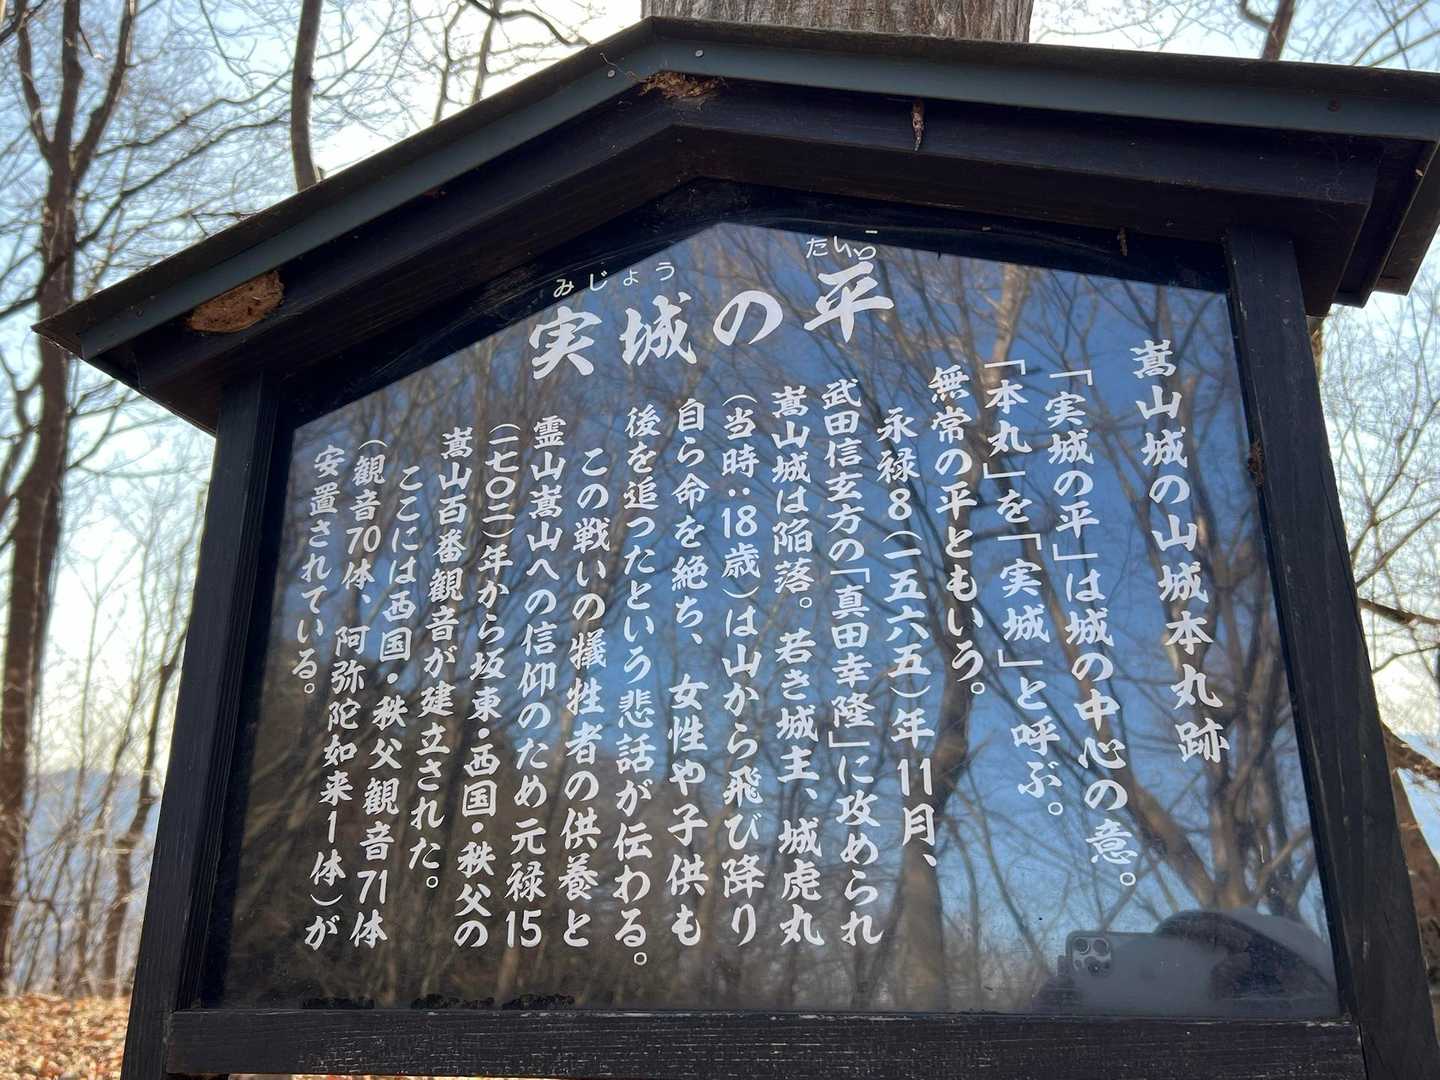 みじょう たいら
実城の平
嵩山城の山城本丸跡
「実城の平」は城の中心の意。
「本丸」を「実城」と呼ぶ。
無常の平ともいう。
永禄8(一五六五)年11月、
武田信玄方の「真田幸隆」に攻められ
嵩山城は陥落。若き城主、城虎丸
(当時:18歳)は山から飛び降り
自ら命を絶ち、女性や子供も
後を追ったという悲話が伝わる。
この戦いの犠牲者の供養と
霊山嵩山への信仰のため元禄15
(一七〇二)年から坂東・西国・秩父の
嵩山百番観音が建立された。
ここには西国・秩父観音71体
(観音70体、阿弥陀如来1体)が
安置されている。